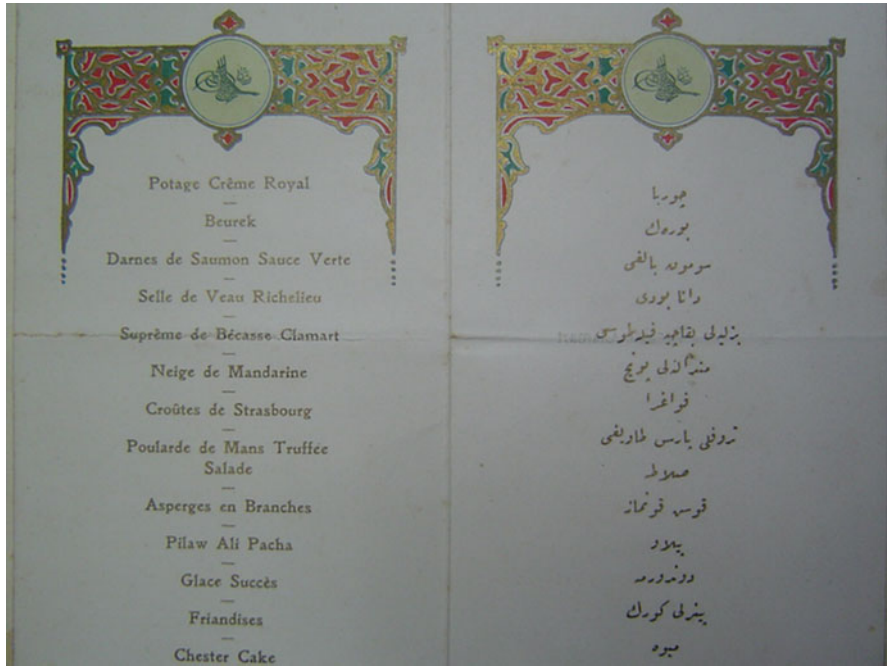 Potage Crême Royal
Beurek
Darnes de Saumon Sauce Verte
Selle de Veau Richelieu
Suprême de Bécasse Clamart
Neige de Mandarine
Croûtes de Strasbourg
Poularde de Mans Truffée
Salade
Asperges en Branches
Pilaw Ali Pacha
Glace Succès
Friandises
Chester Cake
چوربا
بورەك
سومون بالغی
دانا بودی
بزلیلی
مندالنلی پونچ
فواغرا
تروفلی پارس طاویغی
صلاطه
قوش قونماز
پیلاو
دوندورمه
پینرلی كورك
میوه